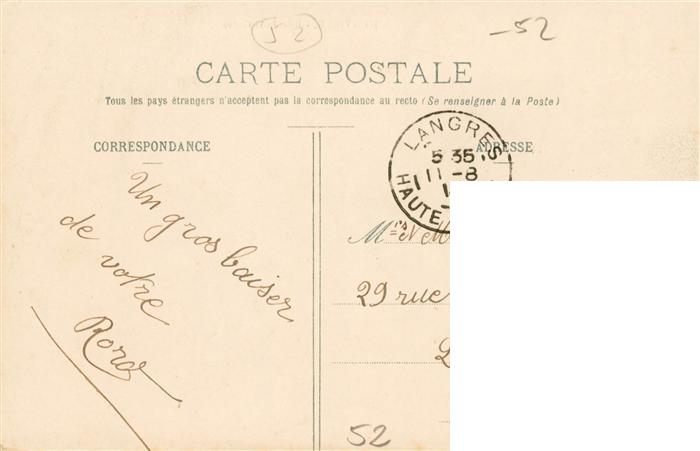 52
-52
CARTE POSTALE
Tous les pays étrangers n'acceptent pas la correspondance au recto (Se renseigner à la Poste)
CORRESPONDANCE
ADRESSE
LANGRES
5 35
11-8
HAUTE
Un gros baiser
de votre
29 rue
52